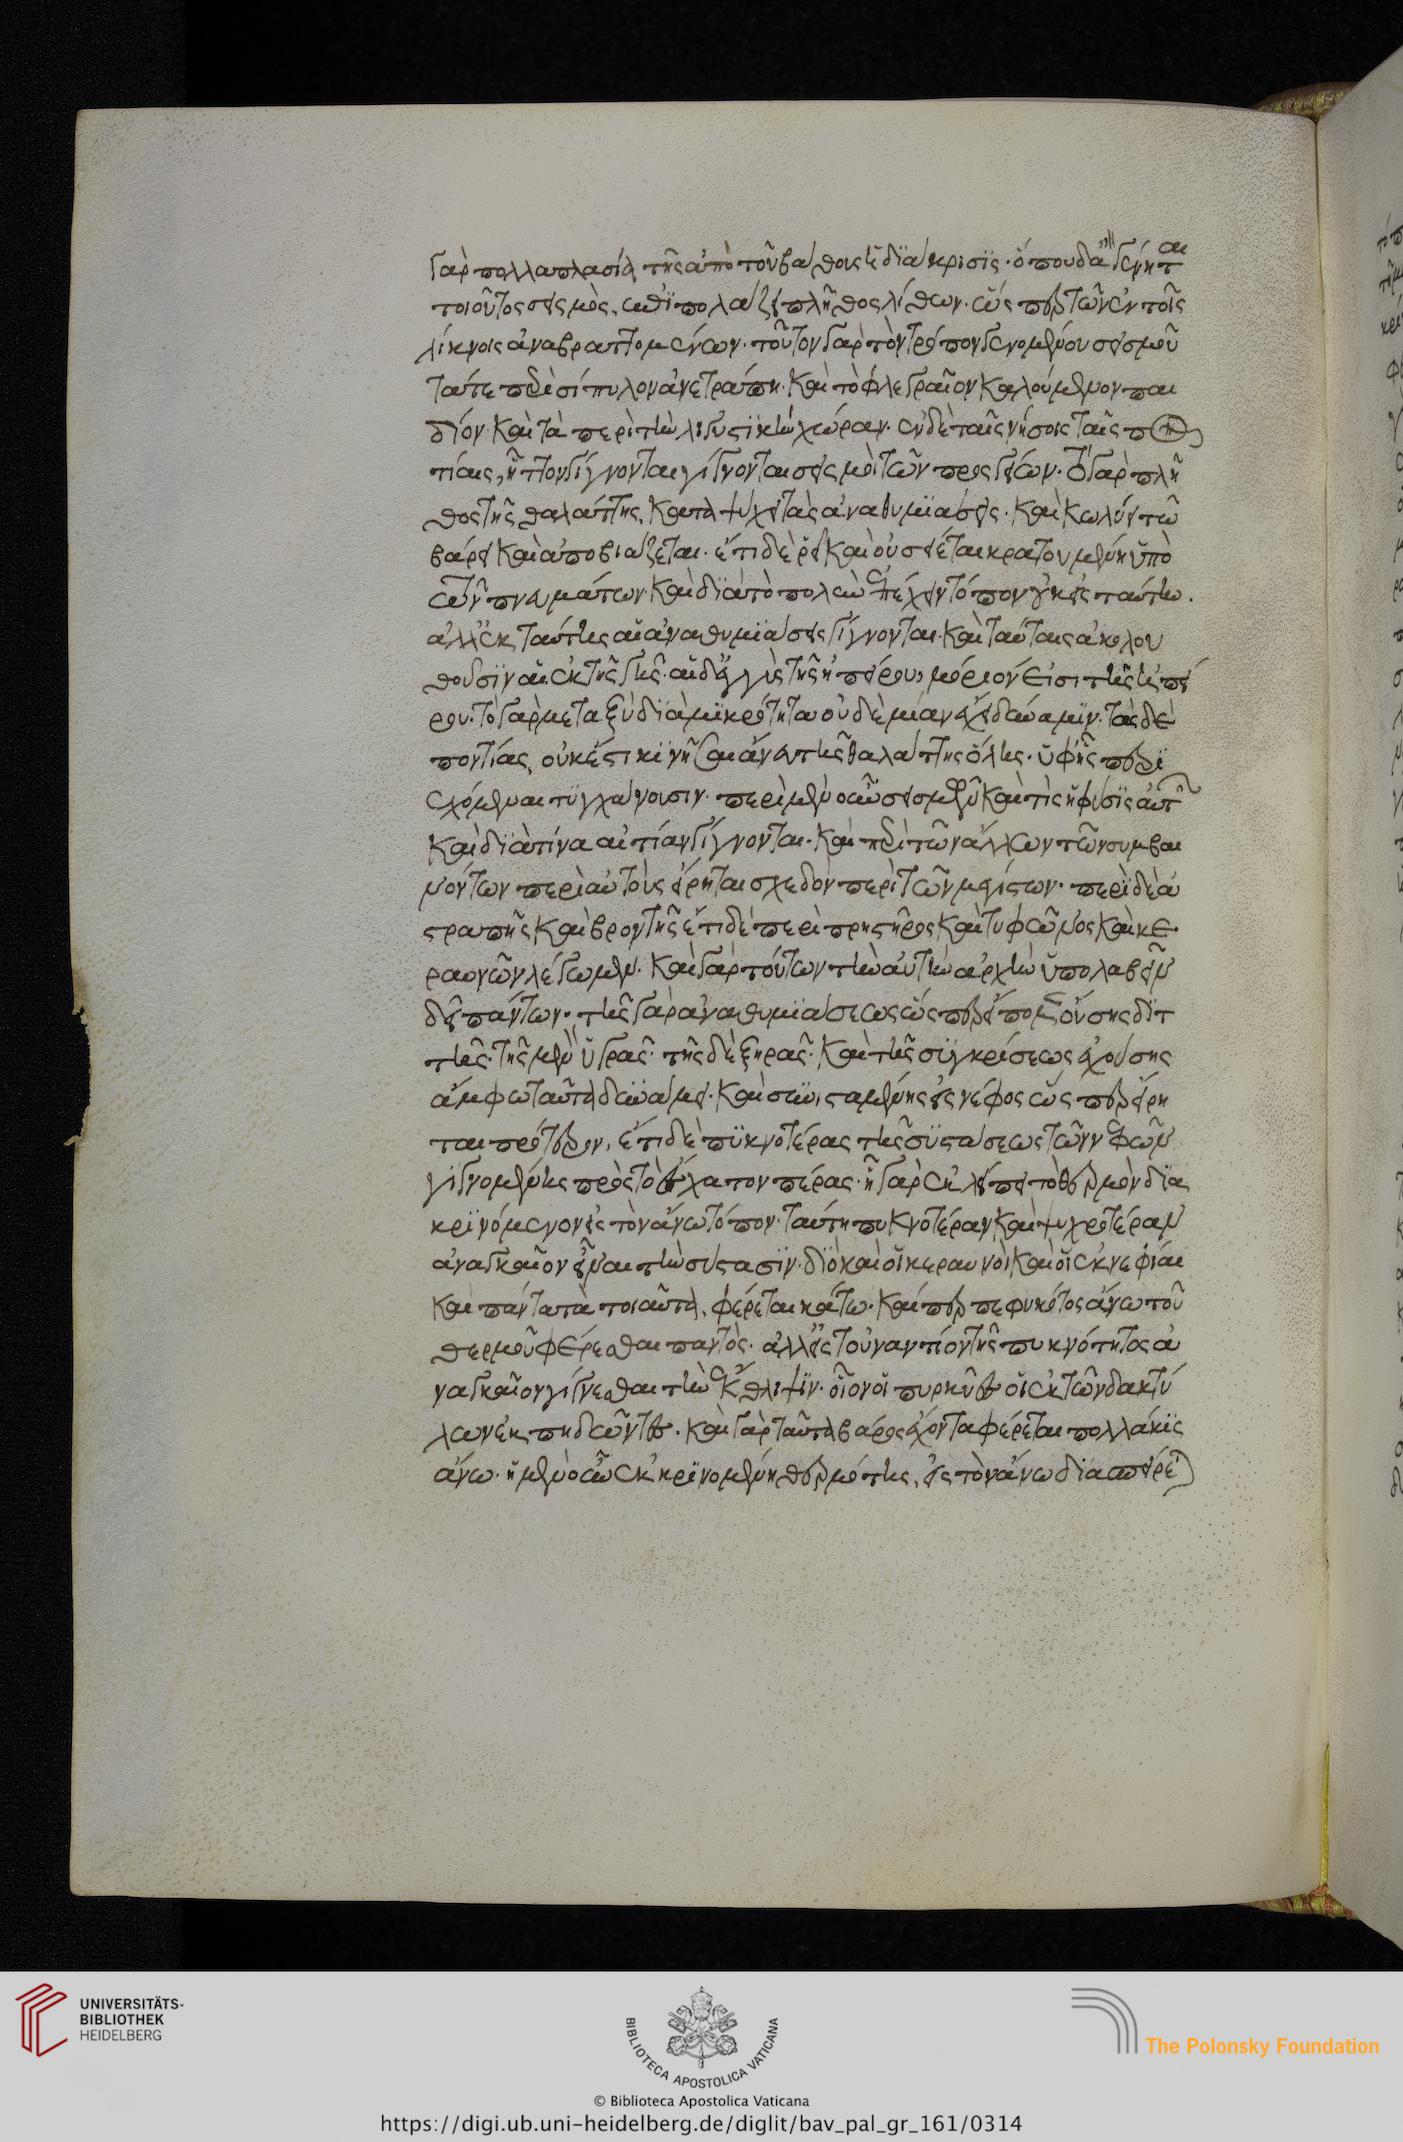 γὰρ πολλαπλασία τῆς ἀπὸ τοῦ βάθους ἡ διάκρισις· ὅπου δ' ἂν γένηται
τοιοῦτος σεισμὸς, ἐπιπολάζει πλῆθος λίθων· ὥσπερ τῶν ἐν τοῖς
λίκνοις ἀναβραττομένων· τοῦτον γὰρ τὸν τρόπον γενομένου σεισμοῦ
τά τε περὶ σίπυλον ἀνετράπη· καὶ τὸ φλεγραῖον καλούμενον παι
δίον· καὶ τὰ περὶ τὴν λιγυστικὴν χώραν· ἐν δὲ ταῖς νήσοις ταῖς πον
τίαις, ἧττον γίγνονται γίγνονται σεισμοὶ τῶν προσγείων· τὸ γὰρ πλῆ
θος τῆς θαλάττης, καταψύχει τὰς ἀναθυμιάσεις· καὶ κωλύει τῷ
βάρει καὶ ἀποβιάζεται· ἔτι δὲ ῥεῖ καὶ οὐ σείεται κρατουμένη ὑπὸ
τῶν πνευμάτων· καὶ διὰ τὸ πολὺν ἐπέχειν τόπον οὐκ εἰς ταύτην.
ἀλλ' ἐκ ταύτης αἱ ἀναθυμιάσεις γίγνονται· καὶ ταύταις ἀκολου
θοῦσιν αἱ ἐκ τῆς γῆς· αἱ δ' ἐγγὺς τῆς ἠπείρου, μόριόν εἰσι τῆς ἠπεί
ρου· τὸ γὰρ μεταξὺ διὰ μικρότητα οὐδεμίαν ἔχει δύναμιν· τὰς δὲ
ποντίας, οὐκ ἔστι κινῆσαι ἄνευ τῆς θαλάττης ὅλης· ὑφ' ἧς περι
εχόμεναι τυγχάνουσιν· περὶ μὲν οὖν σεισμῶν καὶ τίς ἡ φύσις αὐτῶν
καὶ διὰ τίνα αἰτίαν γίγνονται· καὶ περὶ τῶν ἄλλων τῶν συμβαι
νόντων περὶ αὐτοὺς εἴρηται σχεδὸν περὶ τῶν μεγίστων· περὶ δὲ ἀ
στραπῆς καὶ βροντῆς ἔτι δὲ περὶ πρηστῆρος καὶ τυφῶνος καὶ κε
ραυνῶν λέγωμεν· καὶ γὰρ τούτων τὴν αὐτὴν ἀρχὴν ὑπολαβεῖν
δεῖ πάντων· τῆς γὰρ ἀναθυμιάσεως ὥσπερ εἴπομεν οὔσης διτ
τῆς· τῆς μὲν ὑγρᾶς· τῆς δὲ ξηρᾶς· καὶ τῆς συγκρίσεως ἐχούσης
ἄμφω ταῦτα δυνάμει· καὶ συνισταμένης εἰς νέφος ὥσπερ εἴρη
ται πρότερον, ἔτι δὲ πυκνοτέρας τῆς συστάσεως τῶν νεφῶν
γιγνομένης πρὸς τὸ ἔσχατον πέρας· ᾗ γὰρ ἐκλείπει τὸ θερμὸν δια
κρινόμενον εἰς τὸν ἄνω τόπον· ταύτῃ πυκνοτέραν καὶ ψυχροτέραν
ἀναγκαῖον εἶναι τὴν σύστασιν· διὸ καὶ οἱ κεραυνοὶ καὶ οἱ ἐκνεφίαι
καὶ πάντα τὰ τοιαῦτα, φέρεται κάτω· καίπερ πεφυκότος ἄνω τοῦ
θερμοῦ φέρεσθαι παντὸς· ἀλλ' εἰς τοὐναντίον τῆς πυκνότητος ἀ
ναγκαῖον γίγνεσθαι τὴν ἔκθλιψιν· οἷον οἱ πυρῆνες οἱ ἐκ τῶν δακτύ
λων ἐκπηδῶντες· καὶ γὰρ ταῦτα βάρος ἔχοντα φέρεται πολλάκις
ἄνω· ἡ μὲν οὖν ἐκκρινομένη θερμότης, εἰς τὸν ἄνω διασπείρε
UNIVERSITÄTS-
BIBLIOTHEK
HEIDELBERG
BIBLIOTECA APOSTOLICA VATICANA
The Polonsky Foundation
© Biblioteca Apostolica Vaticana
https://digi.ub.uni-heidelberg.de/diglit/bav_pal_gr_161/0314